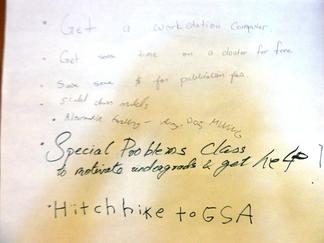 • Get a workstation computer
• Get some time on a cluster for free
• Save some $ for publication fees
• 5 
• Alternative funding -
Special Problems Class
to motivate undergrads & get help!
• Hitchhike to GSA